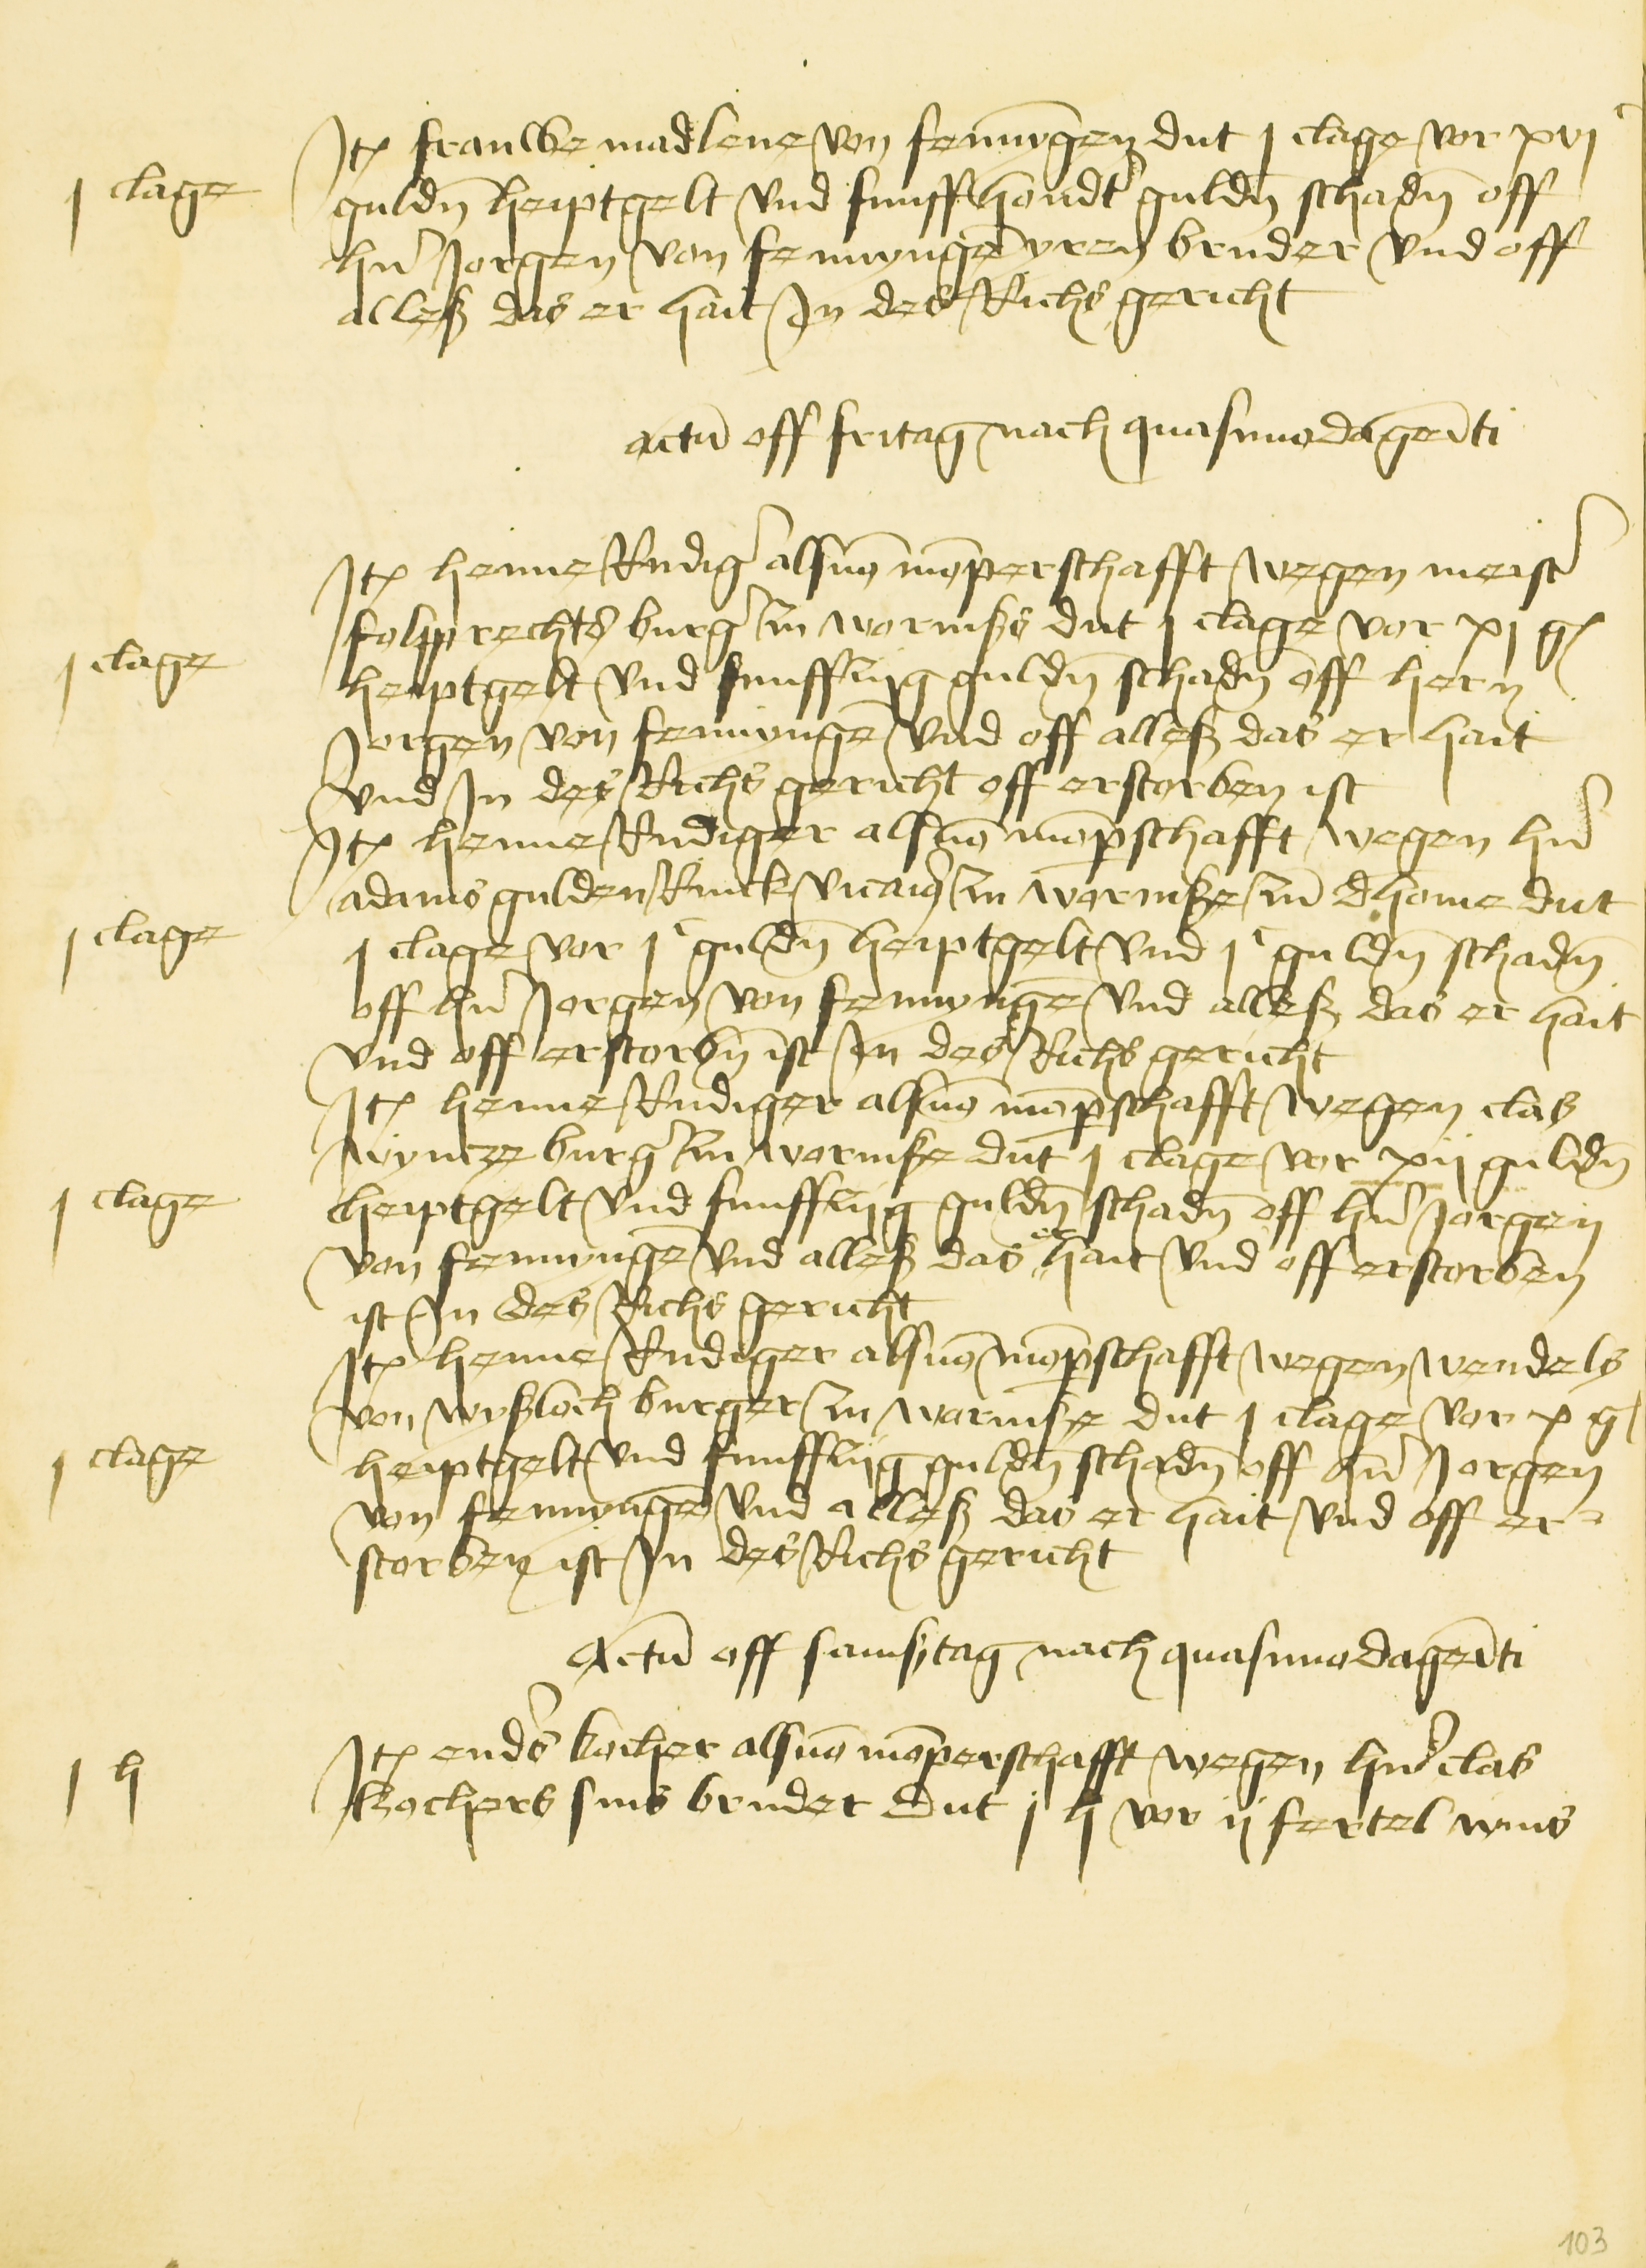 Jt(em) frauwe madlene von fennyngen dut j clage vor xvj c
j clage
guldn̄ heiptgelt vnd funffhondt guldn̄ schadn̄ off
hn̄ Jorgen von fennyngē yren bruder vnd off
alleß das er hait In des Richs gericht
actū off fritag nach quasimodagēiti
Jt(em) henne Rudig(er) alsmō mōperschafft wegen meist(er)
folpprechts burg(er) zu wormßs dut j clage vor xj g(ulden)
j clage
heiptgelt vnd funfftzijg guldn̄ schadn̄ off hern
Jorgen von fennyngē vnd off alleß das er hait
vnd In des Richs gericht off erstorben ist
Jt(em) henne Rudiger alsmō mōp(er)schafft wegen hn̄
adams gulden Rinck vicarig zu wormße zū dhome dut
j clage
j clage vor j c guldn̄ heiptgelt vnd j c guldn̄ schadn̄
off hn̄ Jorgen von fennyngē vnd alleß das er hait
vnd off erstorbn̄ ist In des Richs gericht
Jt(em) henne Rudiger alsmō mōp(er)schafft wegen clas
wyntze burg(er) zu wormße dut j clage vor xij guldn̄
j clage
heiptgelt vnd funfftzijg guldn̄ schadn̄ off hn̄ Jorgen
von fennyngē vnd alleß das er hait vnd off erstorben
ist In des Richs gericht
Jt(em) henne Rudiger alsmō mōp(er)schafft wegen wendels
von wyßloch burger zu wormße dut j clage vor x g(ulden)
j clage
heiptgelt vnd funfftzijg guldn̄ schadn̄ off hn̄ Jorgen
von fennyngē vnd alleß das er hait vnd off er-
storben ist In des Richs gericht
Actū off samßtag nach quasimodagēiti
Jt(em) end(er)s kocher alsmō mōperschafft wegen hn̄ clas
j h
kochers sins bruder dut j h vor ij fertel wins
103